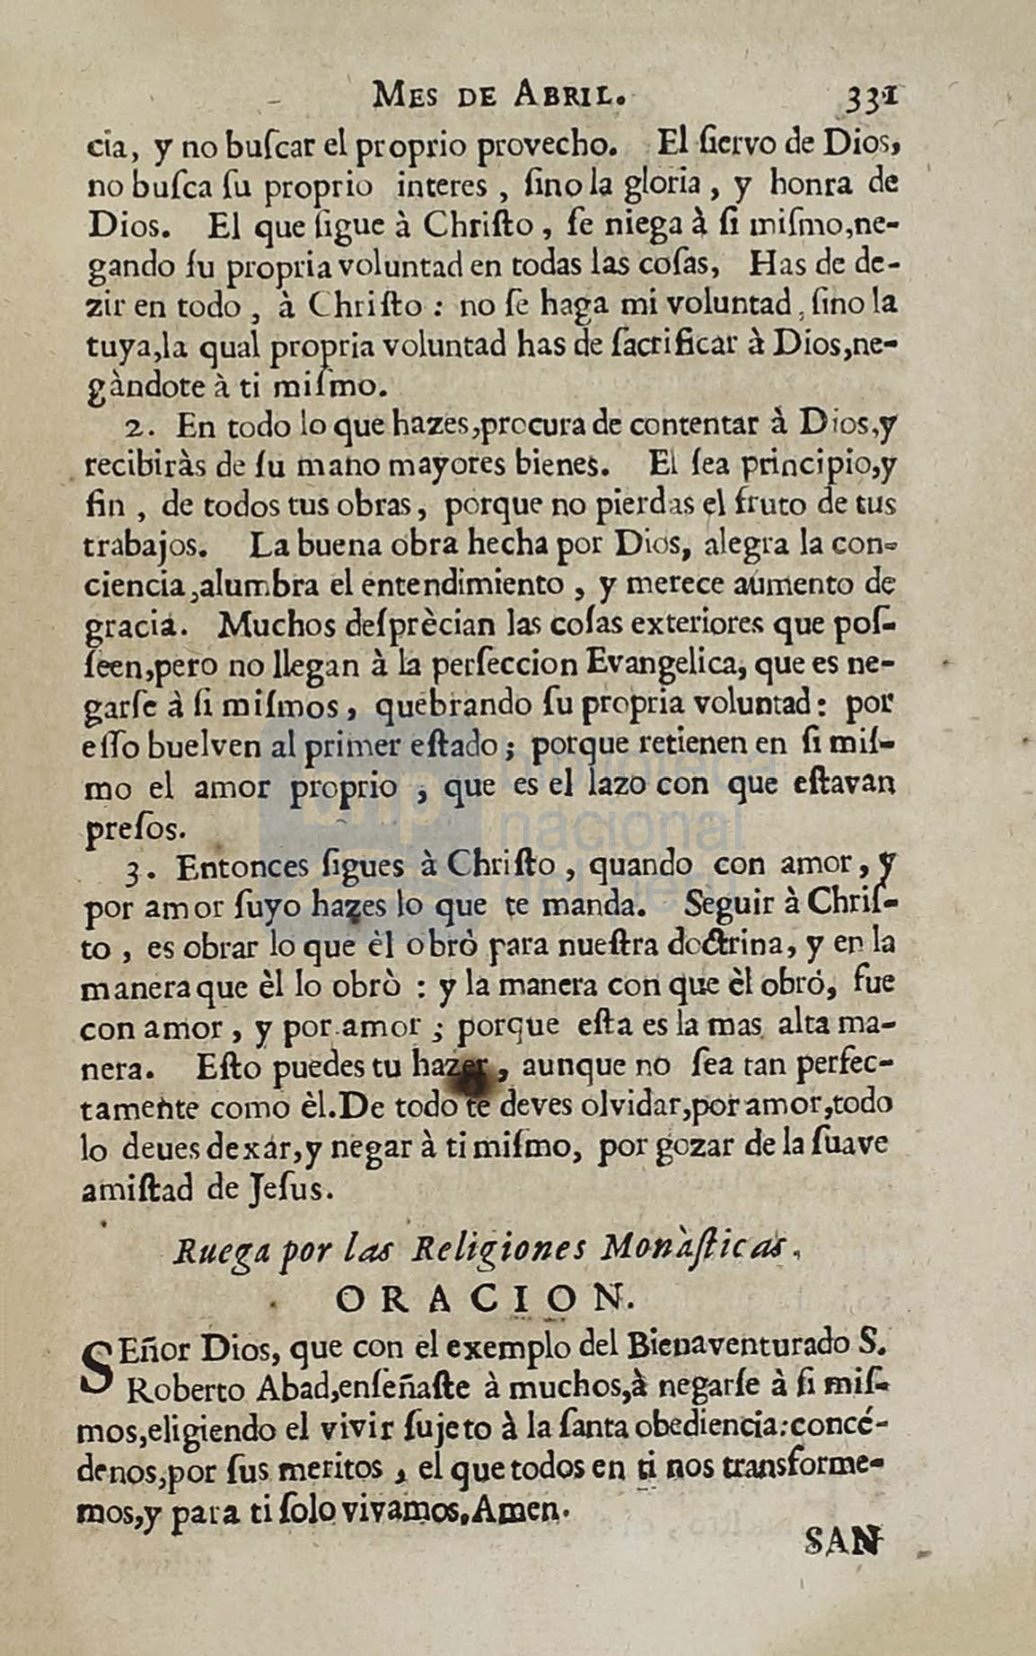 MES DE ABRIL. 331
cia, y no buſcar el proprio provecho. El ſiervo de Dios,
no buſca ſu proprio interes, ſino la gloria, y honra de
Dios. El que ſigue à Chriſto, ſe niega à ſi miſmo,ne-
gando ſu propria voluntad en todas las coſas, Has de de-
zir en todo, à Chriſto: no ſe haga mi voluntad, ſino la
tuya,la qual propria voluntad has de ſacrificar à Dios,ne-
gàndote à ti miſmo.
2. En todo lo que hazes,procura de contentar à Dios,y
recibiràs de ſu mano mayores bienes. El ſea principio,y
fin, de todos tus obras, porque no pierdas el fruto de tus
trabajos. La buena obra hecha por Dios, alegra la con-
ciencia,alumbra el entendimiento, y merece aumento de
gracia. Muchos deſprècian las coſas exteriores que poſ-
ſeen,pero no llegan à la perfeccion Evangelica, que es ne-
garſe à ſi miſmos, quebrando ſu propria voluntad: por
eſſo buelven al primer eſtado; porque retienen en ſi miſ-
mo el amor proprio, que es el lazo con que eſtavan
preſos.
3. Entonces ſigues à Chriſto, quando con amor, y
por amor ſuyo hazes lo que te manda. Seguir à Chriſ-
to, es obrar lo que èl obrò para nueſtra doctrina, y en la
manera que èl lo obrò: y la manera con que èl obró, fue
con amor, y por amor; porque eſta es la mas alta ma-
nera. Eſto puedes tu hazer, aunque no ſea tan perfec-
tamente como èl.De todo te deves olvidar,por amor,todo
lo deues dexar,y negar à ti miſmo, por gozar de la ſuave
amiſtad de Jeſus.
Ruega por las Religiones Monàſticas.
ORACION.
SEñor Dios, que con el exemplo del Bienaventurado S.
Roberto Abad,enſeñaſte à muchos,à negarſe à ſi miſ-
mos,eligiendo el vivir ſujeto à la ſanta obediencia:concé-
denos,por ſus meritos, el que todos en ti nos transforme-
mos,y para ti ſolo vivamos,Amen.
SAN
bnp biblioteca
nacional
del perú